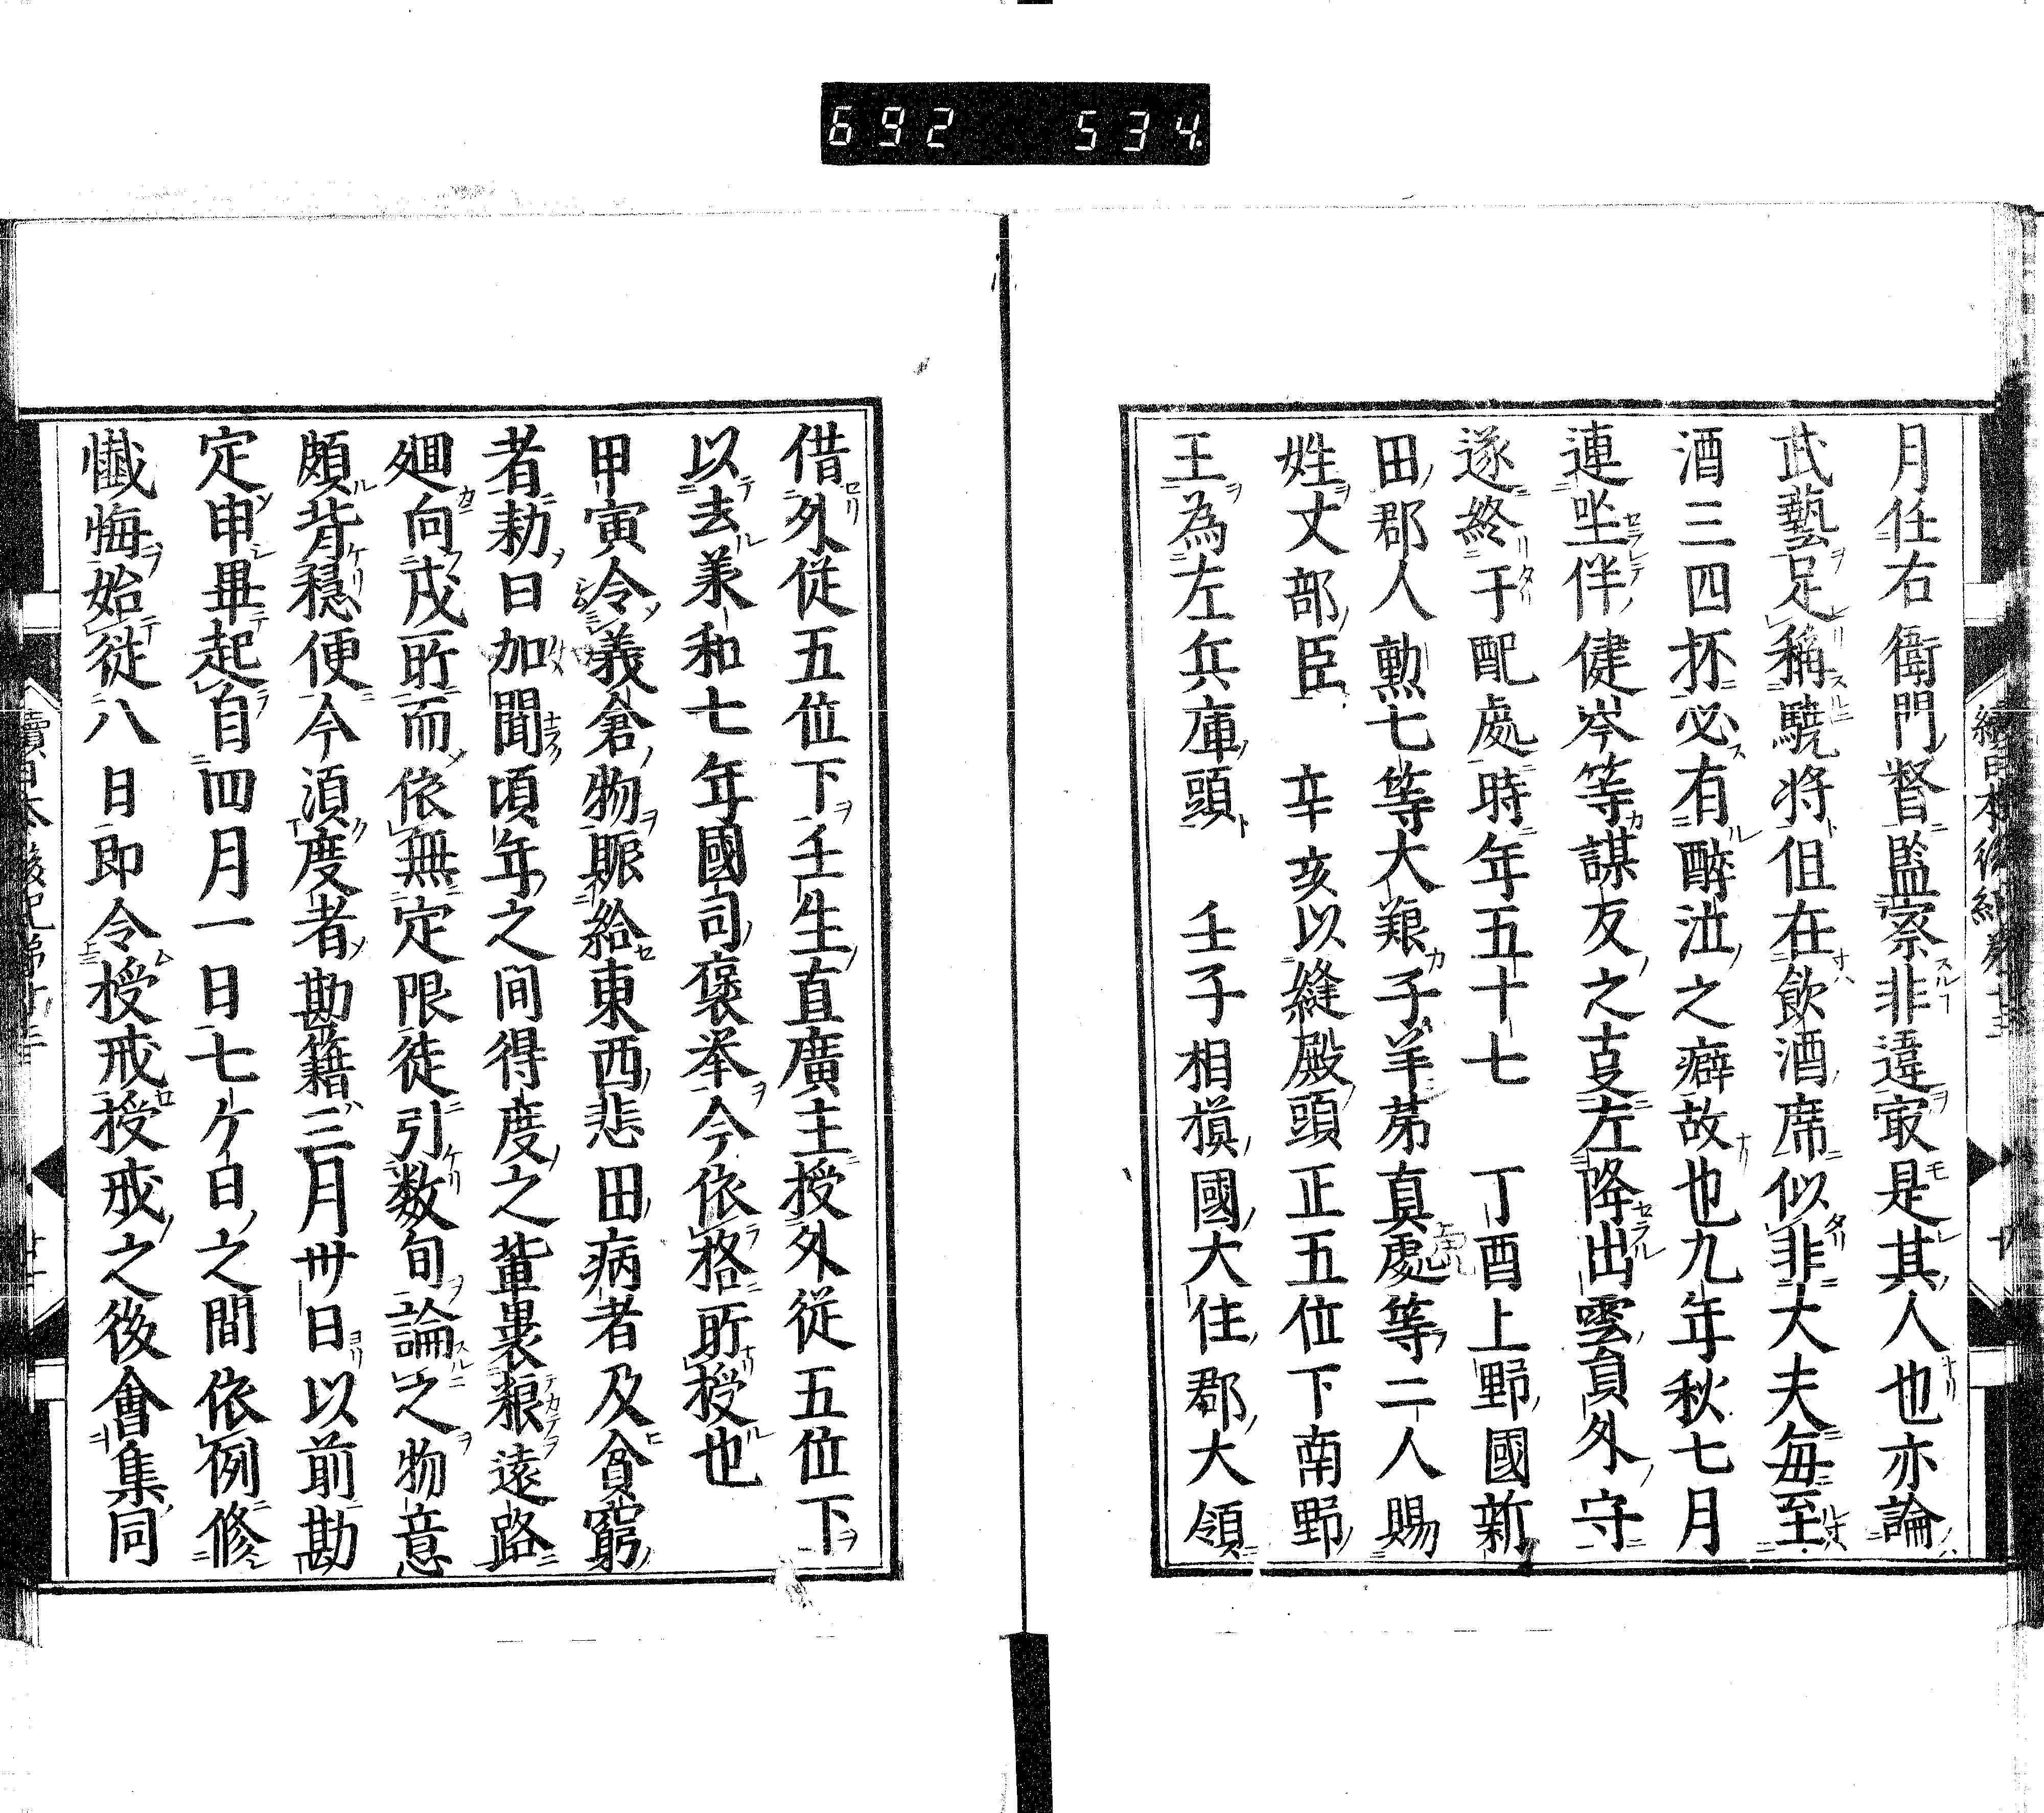 692 534
月任右衛門督監察非違㝡是其人也亦論
武藝足稱驍將但在飲酒席似非大夫每至
酒三四坏必有醉泣之癖故也九年秋七月
連坐伴健岑等謀反之支左降出雲員外守
遂終于配處時年五十七 丁酉上野國新
田郡人勲七等大艱子羊苐真處等二人賜
姓丈部臣 辛亥以縫殿頭正五位下南野
王為左兵庫頭 壬子相摸國大住郡大領
借外從五位下壬生直廣主授外從五位下
以去羕和七年國司褒举今依格所授也
甲寅令義倉物賑給東西悲田病者及貧窮
者勅曰加聞頃年之間得度之輩褁粮遠路
廻向戌所而依無定限徒引数旬論之物意
頗背穏便今湏度者勘籍三月卅日以前勘
定申畢起自四月一日七ケ日之間依例修
懺悔始從八日即令授戒授戒之後會集同